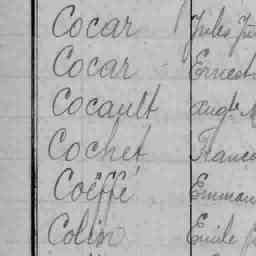 Cocar Jules
Cocar Ernest
Cocault Aug.te
Cochet Franco
Coëffé Emman
Colin Emile